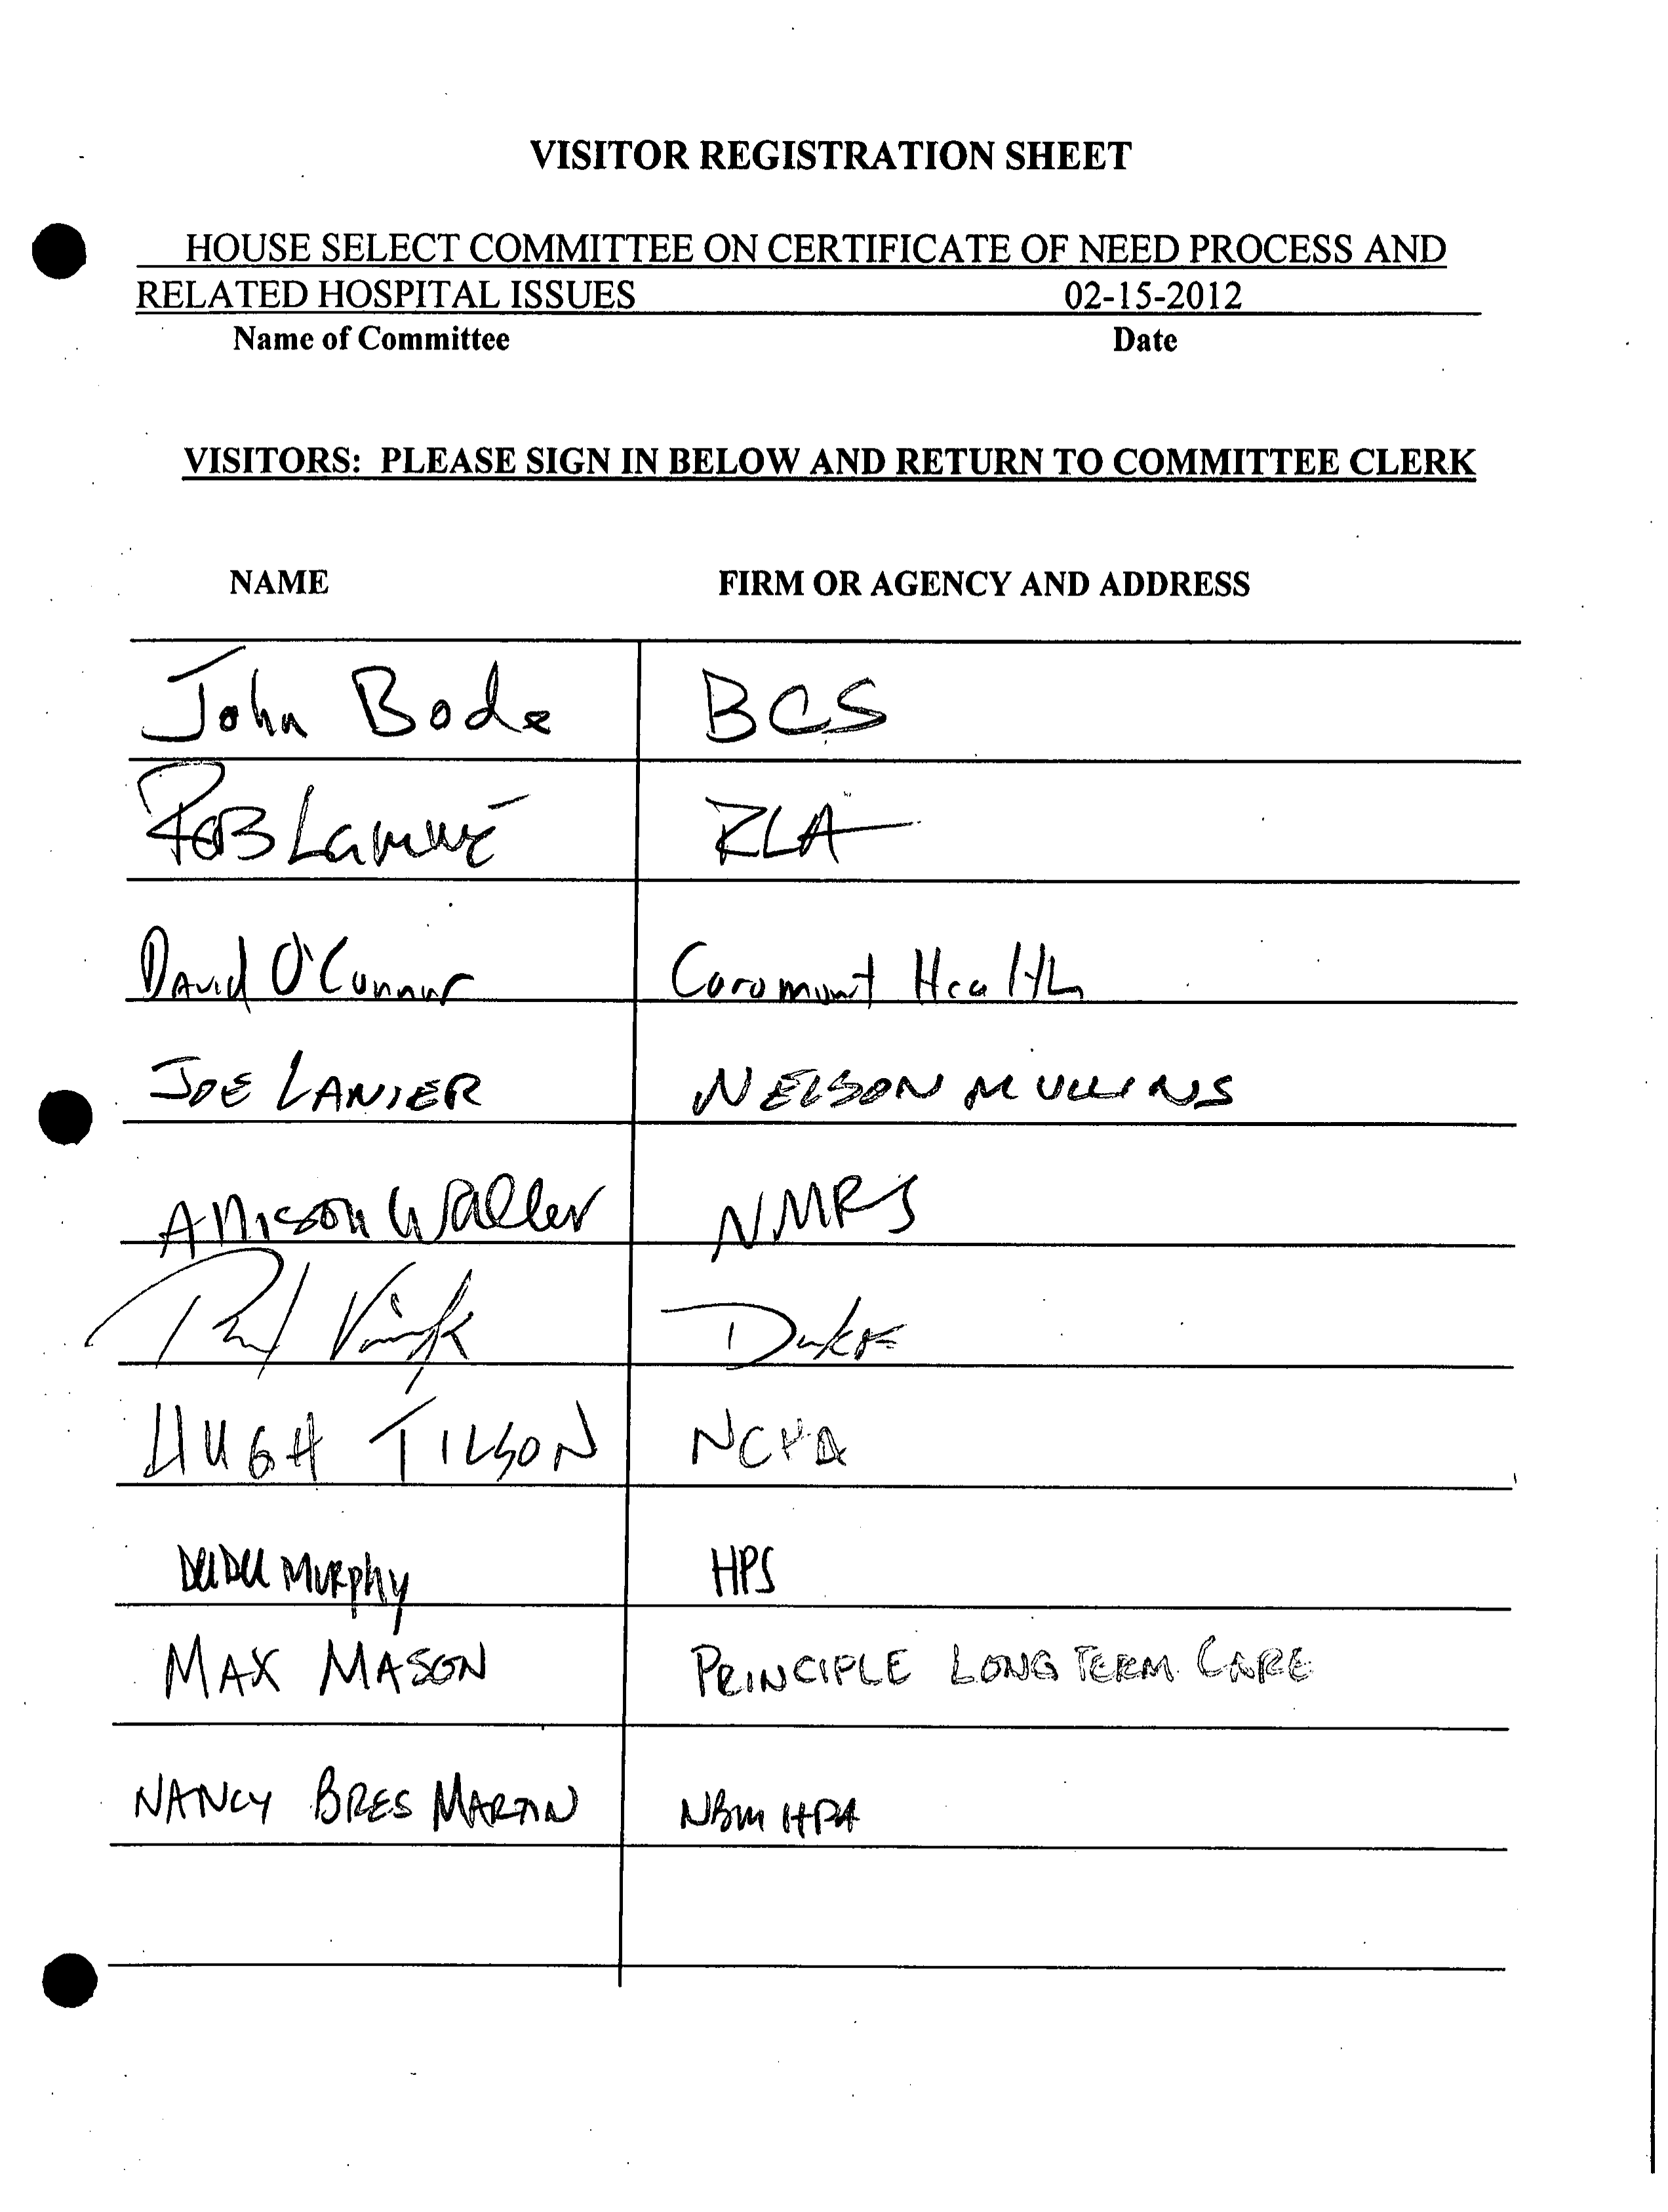 VISITOR REGISTRATION SHEET
HOUSE SELECT COMMITTEE ON CERTIFICATE OF NEED PROCESS AND
RELATED HOSPITAL ISSUES 02-15-2012
Name of Committee Date
VISITORS: PLEASE SIGN IN BELOW AND RETURN TO COMMITTEE CLERK
NAME FIRM OR AGENCY AND ADDRESS
John Bode BCS
ROB Lammé RLA
David O'Connor Caromont Health
JOE LANIER NELSON MULLINS
Allison Waller NMRS
Paul Duke
HUGH TILSON NCHA
Murphy HPS
MAX MASON PRINCIPLE LONG TERM CARE
NANCY BRES MARTIN NBM HPA